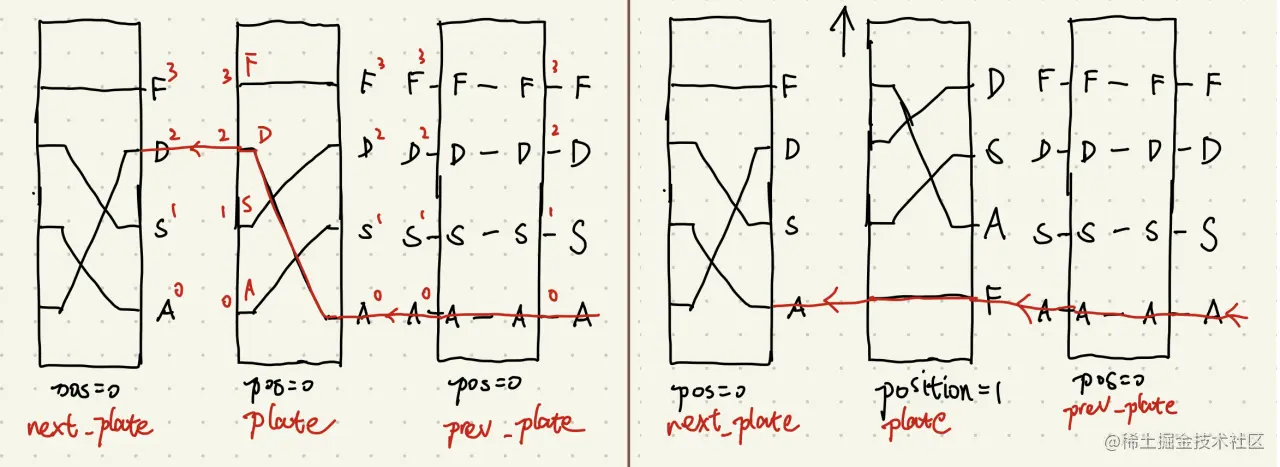 F 3
D 2
S 1
A 0
pos=0
next_plate
3 F
2 D
1 S
0 A
F 3
D 2
S 1
A 0
pos=0
plate
3 3
F F — F F
2 2
D D — D D
1 1
S S — S S
0 0
A A — A A
pos=0
prev_plate
F
D
S
A
pos=0
next_plate
D
S
A
F
position=1
plate
F F — F F
D D — D D
S S — S S
A A — A A
pos=0
prev_plate
@稀土掘金技术社区